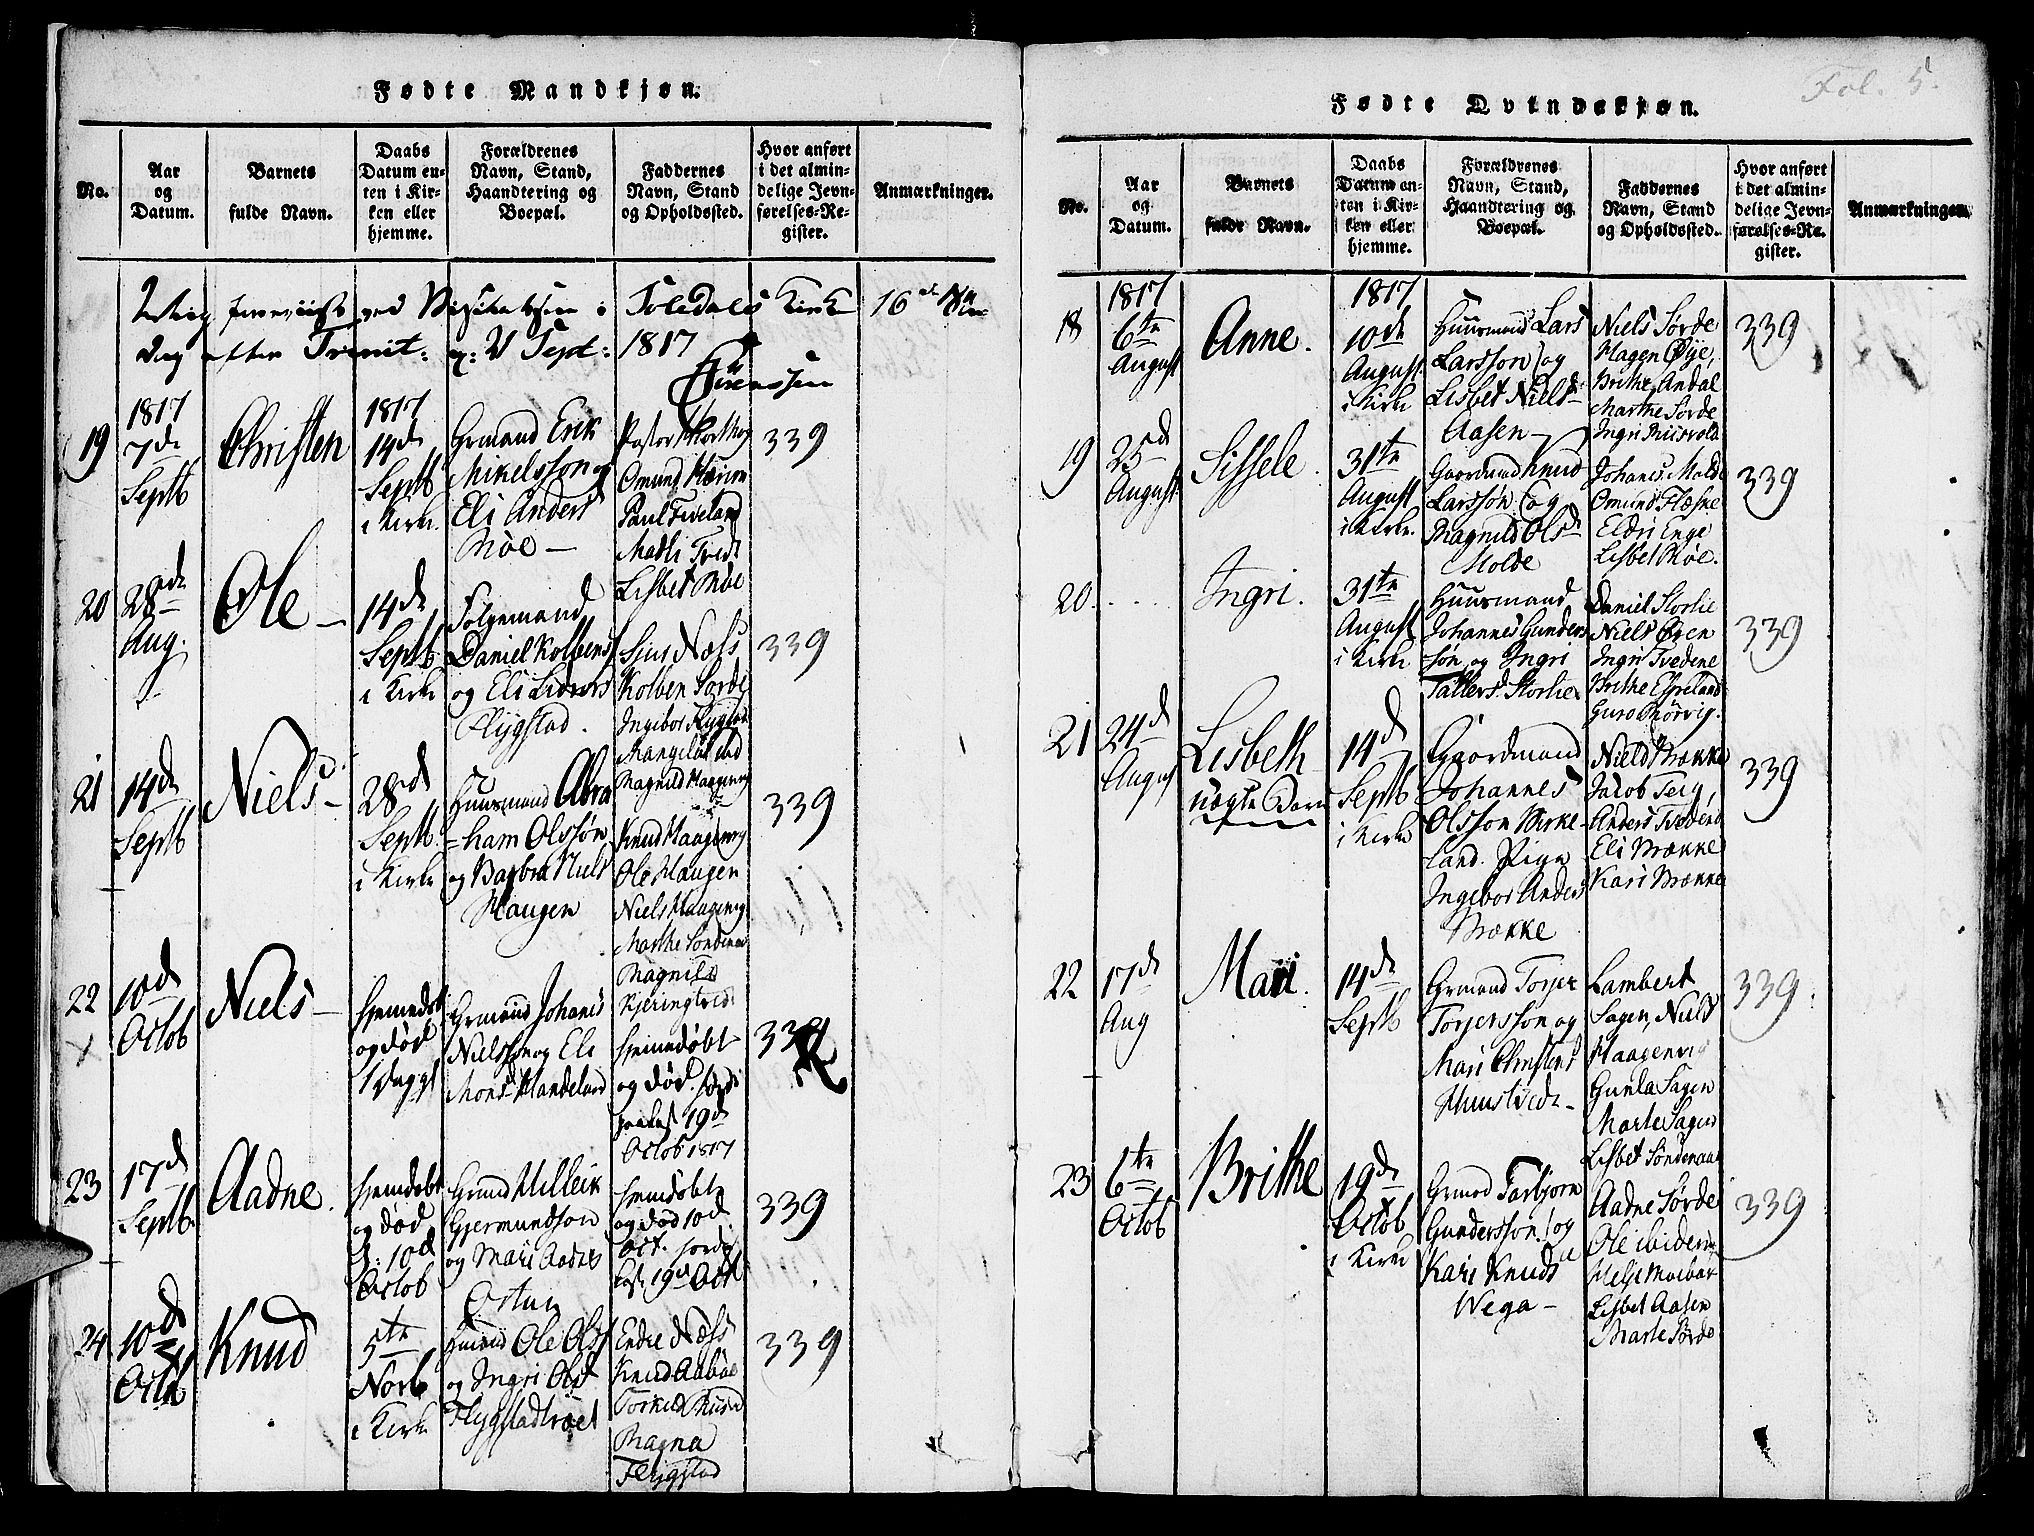 Fødte Mandkjøn.
No.
Aar
og
Datum.
Barnets
fulde Navn.
Daabs
Datum en-
ten i Kir-
ken eller
hjemme.
Forældrenes
Navn, Stand,
Haandtering og
Boepæl.
Faddernes
Navn, Stand
og Opholdssted.
Hvor anført
i det almin-
delige Jevn-
førelses-Re-
gister.
Anmærkninger.
Visitatsen i Soledals Kirke 16
Dag efter Trinit: 1817
19
1817
7de
Septb
Christen
1817
14de
Septb
i Kirke
Grmand Erik
Mikelsson og
Eli Anders
Møe
Omund
Paul Tveland
Lisbet Møe
339
20
28de
Aug.
Ole
14de
Septb
i Kirke
Daniel Kolbens
og Eli
Flygstad.
Sjur Næss
Kolben Sørde
Ingebor Flygstad
339
21
14de
Septb
Niels
28de
Septb
i Kirke
Huusmand Abra
=ham Olssøn
og Barbra Niels
Haugen
Magnild Haagenvig
Knud Haagenvig
Ole Haugen
Niels Haagenvig
Marthe Søndenaa
Magnild
339
22
10de
Octob
Niels
hjemdøbt
og død
Grmand Johanes
Nielsson og Eli
Mons Handeland
hjemedøbt
og død.
19de
Octob 1817
339
23
17de
Septb
Aadne.
hjemdøbt
og død
d: 10de
Octob
Grmd Villeik
Gjermundson
og Mari Aadnes
hjemdøbt
og død 10de
Oct.
19de Oct
339
24
10de
Octb
Knud
5te
Novb
i Kirke
Ole Ols
og Ingri Ols
Endre Næss
Knud
Magna
Flygstad
339
Fol. 5.
Fødte Qvindekjøn.
No.
Aar
og
Datum.
Barnets
fulde Navn.
Daabs
Datum en-
ten i Kir-
ken eller
hjemme.
Forældrenes
Navn, Stand,
Haandtering og
Boepæl.
Faddernes
Navn, Stand
og Opholdssted.
Hvor anført
i det almin-
delige Jevn-
førelses-Re-
gister.
Anmærkninger.
18
1817
6te
August
Anne.
1817
10de
August
i Kirke
Huusmand Lars
Larsson og
Lisbet Niels
Aasen
Niels Sørde
Hagen Øye,
Brithe Andal
Marthe Sørde
Ingri
339
19
25de
August
Sissele
31te
August
i Kirke
Gaardmand Knud
Larssøn og
Magnild Ols
Molde
Johanes Molde
Omund Flæske
Eldri Enge
Lisbet Møe.
339
20.
Ingri.
31te
August
i Kirke
Huusmand
Johannes Gunders
søn og Ingri
Tallers Storlie
Daniel Storlie
Niels Øgen
Ingri Tvedene
Brithe
Guro
339
21
24de
August
Lisbeth
uægte Barn
14de
Septb
i Kirke
Gaardmand
Johannes
Olsson Birke-
land. Pige
Ingebor Anders
Brække
Niels Brække
Jacob
Anders Tvedene
Eli Brække
Kari Brække
339
22
17de
Aug
Mari.
14de
Septb
Grmand Torjer
Torjersson og
Mari Christens
Lambert
Sagen, Niels
Haagenvig
Gunla Sagen
Marte Sagen
Lisbet Søndenaa
339
23
6te
Octob
Brithe
19de
Octob
i Kirke
Grmd Torbjorn
Gundersson og
Kari Knuds
Wega
Aadne Sørde
Ole ibidem,
Lisbet Aasen
Marte Sørde
339